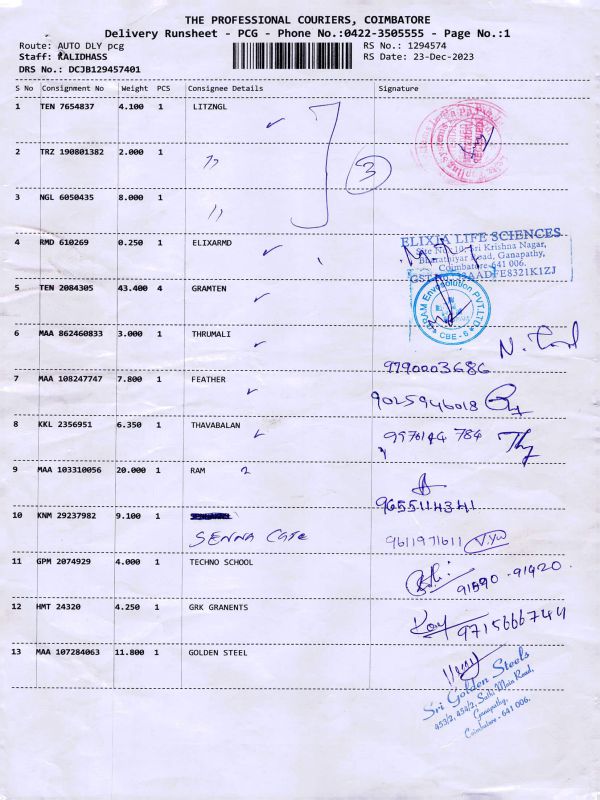 THE PROFESSIONAL COURIERS, COIMBATORE
Delivery Runsheet - PCG - Phone No.:0422-3505555 - Page No.:1
Route: AUTO DLY pcg RS No.: 1294574
Staff: KALIDHASS RS Date: 23-Dec-2023
DRS No.: DCJB129457401
S No Consignment No Weight PCS Consignee Details Signature
1 TEN 7654837 4.100 1 LITZNGL
2 TRZ 190801382 2.000 1 "
3
3 NGL 6050435 8.000 1 "
4 RMD 610269 0.250 1 ELIXARMD
ELIXIA LIFE SCIENCES
Site No. 10, Sri Krishna Nagar,
Bharathiyar Road, Ganapathy,
Coimbatore-641 006.
5 TEN 2084305 43.400 4 GRAMTEN
CBE - 6
6 MAA 862460833 3.000 1 THRUMALI
9790003686
7 MAA 108247747 7.800 1 FEATHER
9025946018
8 KKL 2356951 6.350 1 THAVABALAN
9976144 784
9 MAA 103310056 20.000 1 RAM 2
9655114341
10 KNM 29237982 9.100 1
SENNA CAFE 9611971611
11 GPM 2074929 4.000 1 TECHNO SCHOOL
91590-91420
12 HMT 24320 4.250 1 GRK GRANENTS
9715666744
13 MAA 107284063 11.800 1 GOLDEN STEEL
Sri Golden Steels
453/2, 454/2, Sathi Main Road,
Ganapathy,
Coimbatore - 641 006.